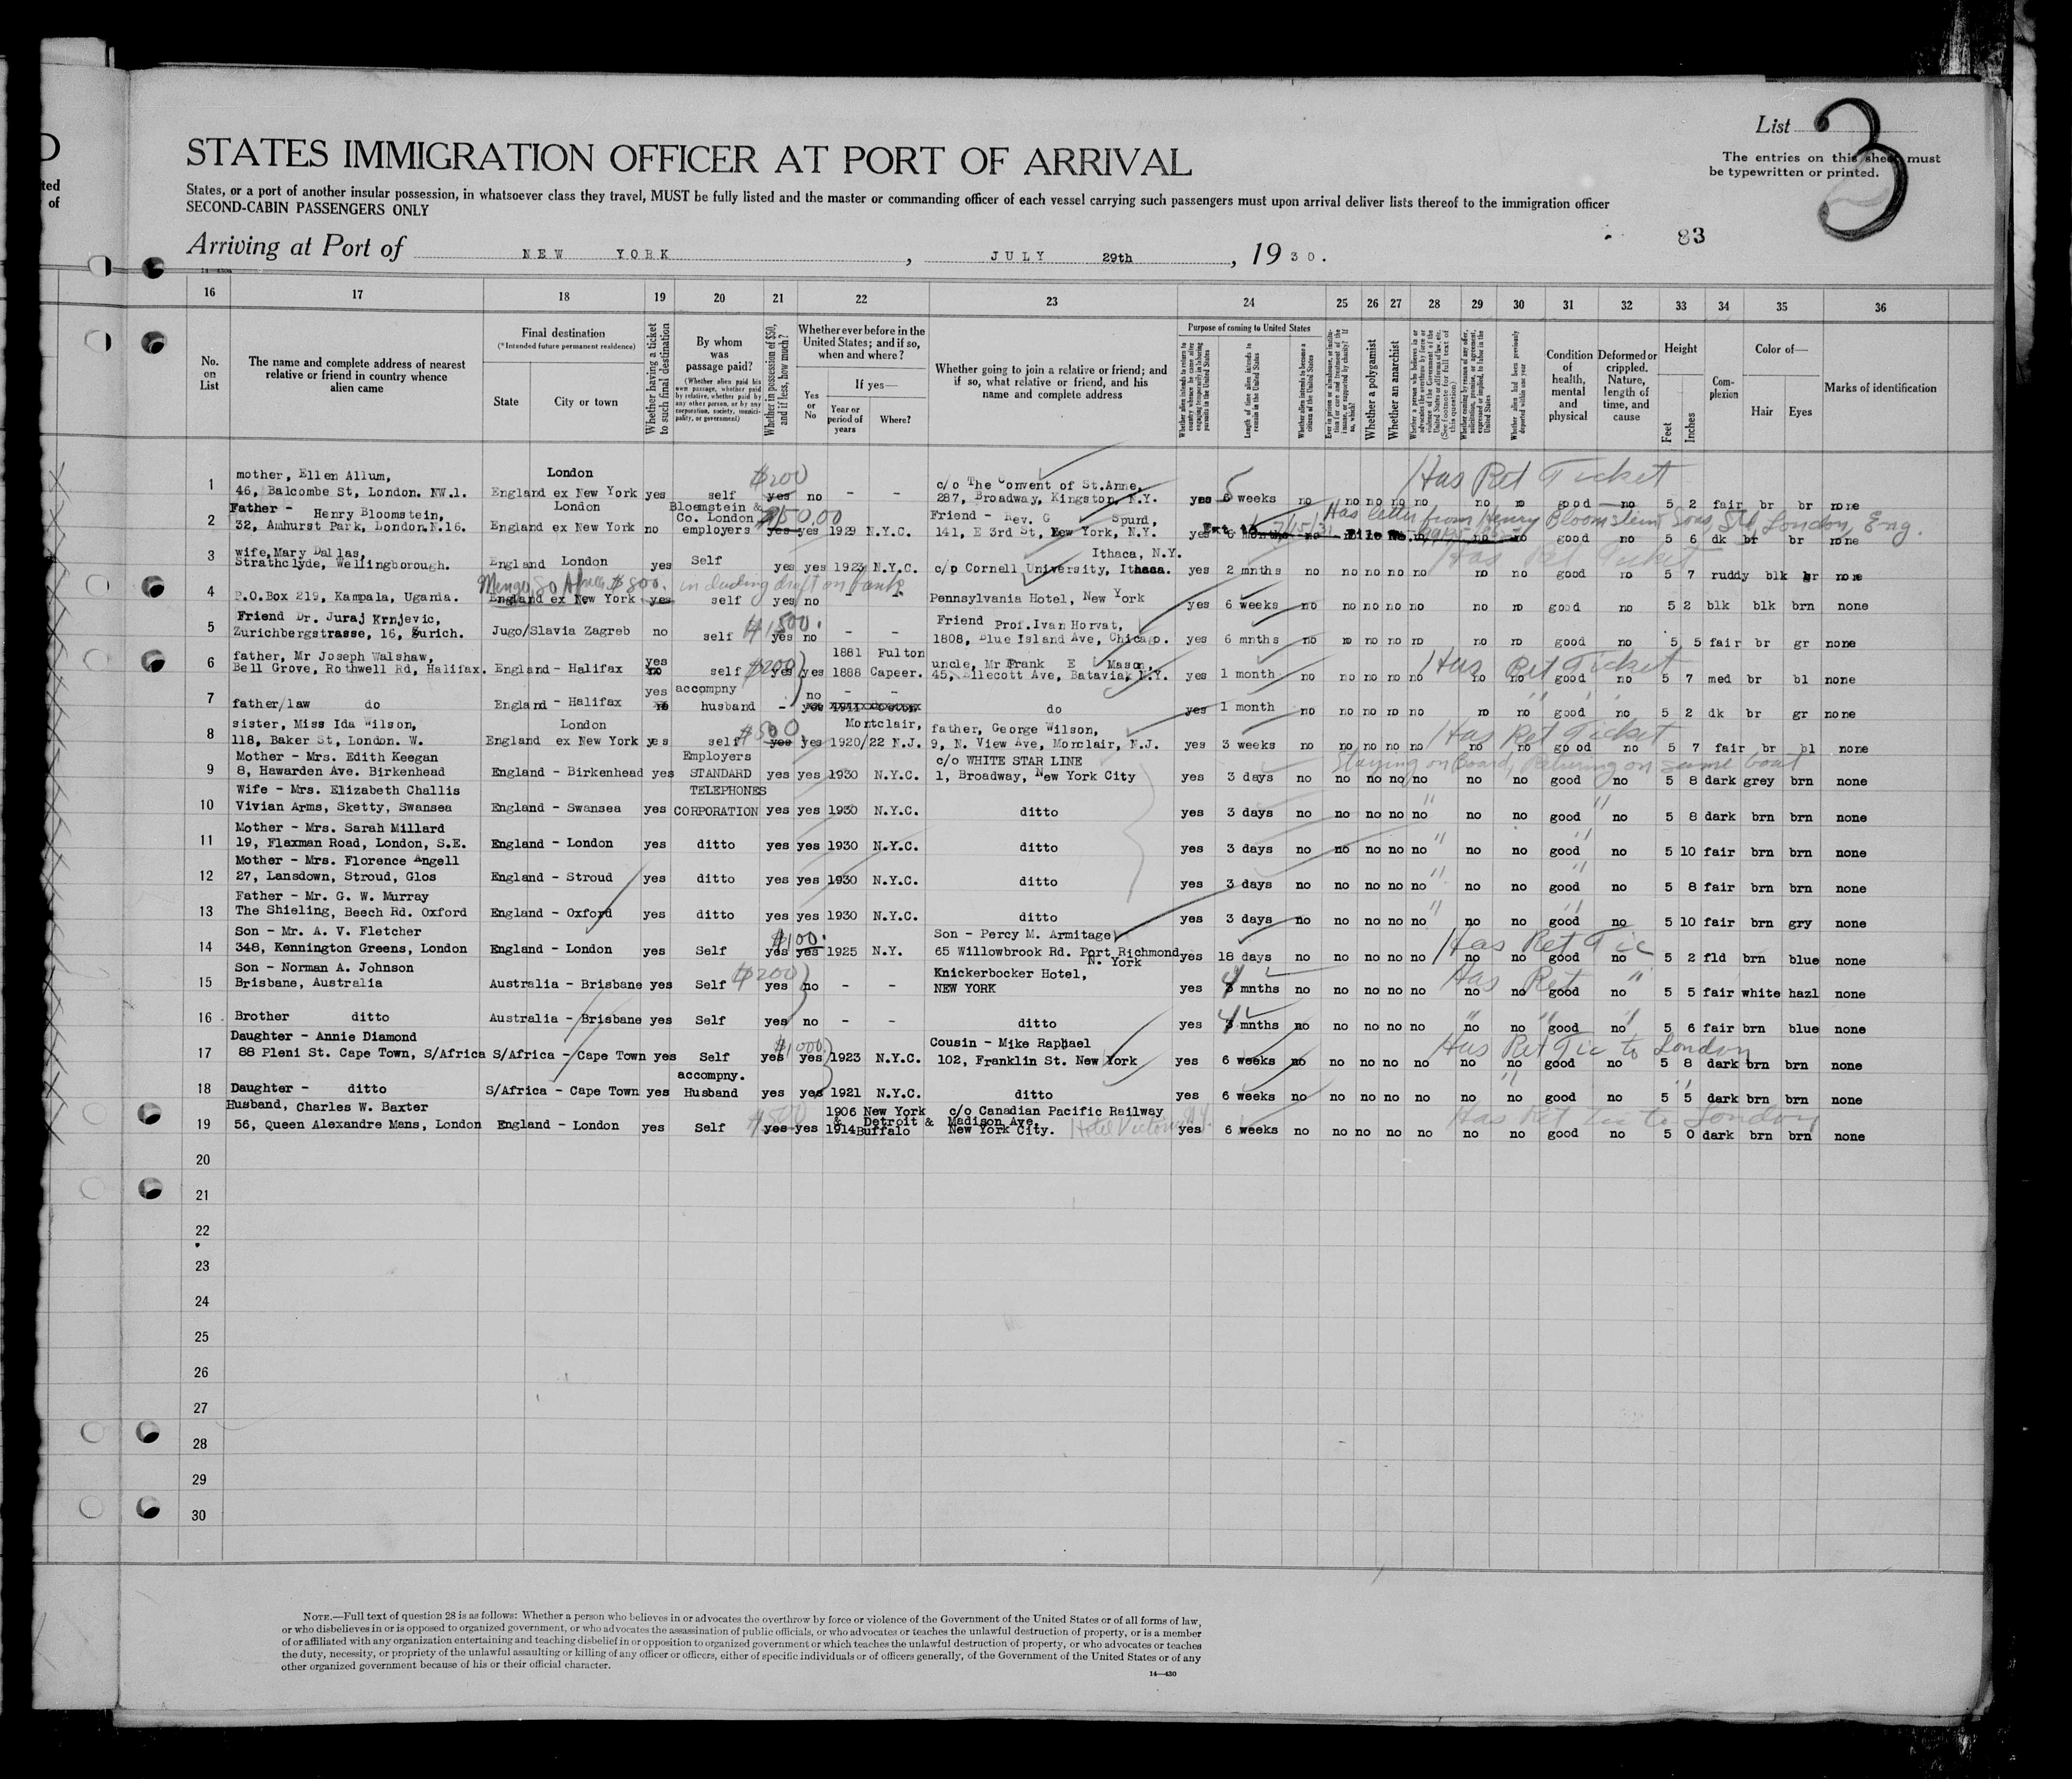 List 3
The entries on this sheet must
be typewritten or printed.
STATES IMMIGRATION OFFICER AT PORT OF ARRIVAL
States, or a port of another insular possession, in whatsoever class they travel, MUST be fully listed and the master or commanding officer of each vessel carrying such passengers must upon arrival deliver lists thereof to the immigration officer
SECOND-CABIN PASSENGERS ONLY
83
Arriving at Port of NEW YORK, JULY 29th, 1930.
16 17 18 19 20 21 22 23 24 25 26 27 28 29 30 31 32 33 34 35 36
No. on List
The name and complete address of nearest relative or friend in country whence alien came
Final destination
(*Intended future permanent residence)
State
City or town
Whether having a ticket to such final destination
By whom was passage paid?
(Whether alien paid his own passage, whether paid by relative, whether paid by any other person, or by any corporation, society, municipality, or government)
Whether in possession of $50, and if less, how much?
Whether ever before in the United States; and if so, when and where?
Yes or No
If yes—
Year or period of years
Where?
Whether going to join a relative or friend; and if so, what relative or friend, and his name and complete address
Purpose of coming to United States
Length of time alien intends to remain in the United States
Whether alien intends to become a citizen of the United States
Whether a polygamist
Whether an anarchist
Condition of health, mental and physical
Deformed or crippled. Nature, length of time, and cause
Height
Feet
Inches
Complexion
Color of—
Hair
Eyes
Marks of identification
1 mother, Ellen Allum, London $200 c/o The Convent of St.Anne, Has Ret Ticket
46, Balcombe St, London. NW.1. England ex New York yes self yes no - - 287, Broadway, Kingston, N.Y. yes weeks no no no no no no no good no 5 2 fair br br none
2 Father - Henry Bloomstein, London Bloemstein & Co. London $150.00 Friend - Rev. G Spurd, Has letter from Henry Bloomstein Sons, Ltd, London, Eng.
32, Amhurst Park, London.N.16. England ex New York no employers yes yes 1929 N.Y.C. 141, E 3rd St, New York, N.Y. yes 6 months no good no 5 6 dk br br none
3 wife,Mary Dallas, Ithaca, N.Y. Has Ret Ticket
Strathclyde, Wellingborough. England London yes Self yes yes 1923 N.Y.C. c/p Cornell University, Ithaca. yes 2 mnths no no no no no no no good no 5 7 ruddy blk br none
4 $800. including draft on bank
P.O.Box 219, Kampala, Uganda. England ex New York yes self yes no - - Pennsylvania Hotel, New York yes 6 weeks no no no no no no no good no 5 2 blk blk brn none
5 Friend Dr. Juraj Krnjevic, $1500. Friend Prof.Ivan Horvat,
Zurichbergstrasse, 16, Zurich. Jugo/Slavia Zagreb no self yes no - - 1808, Blue Island Ave, Chicago. yes 6 mnths no no no no no no no good no 5 5 fair br gr none
6 father, Mr Joseph Walshaw, yes $200 1881 Fulton uncle, Mr Frank E Mason, Has Ret Ticket
Bell Grove, Rothwell Rd, Halifax. England- Halifax no self yes yes 1888 Capeer. 45, Ellecott Ave, Batavia, N.Y. yes 1 month no no no no no no no good no 5 7 med br bl none
7 yes accompny no - -
father/law do England - Halifax no husband - yes do yes 1 month no no no no no no no good no 5 2 dk br gr none
8 sister, Miss Ida Wilson, London $500 Montclair, father, George Wilson, Has Ret Ticket
118, Baker St, London. W. England ex New York yes self yes yes 1920/22 N.J. 9, N. View Ave, Monclair, N.J. yes 3 weeks no no no no no no no good no 5 7 fair br bl none
9 Mother - Mrs. Edith Keegan Employers c/o WHITE STAR LINE Staying on Board, Returning on same boat
8, Hawarden Ave. Birkenhead England - Birkenhead yes STANDARD yes yes 1930 N.Y.C. 1, Broadway, New York City yes 3 days no no no no no no no good no 5 8 dark grey brn none
10 Wife - Mrs. Elizabeth Challis TELEPHONES
Vivian Arms, Sketty, Swansea England - Swansea yes CORPORATION yes yes 1930 N.Y.C. ditto yes 3 days no no no no no " no no good " no 5 8 dark brn brn none
11 Mother - Mrs. Sarah Millard
19, Flaxman Road, London, S.E. England - London yes ditto yes yes 1930 N.Y.C. ditto yes 3 days no no no no no " no no good " no 5 10 fair brn brn none
12 Mother - Mrs. Florence Angell
27, Lansdown, Stroud, Glos England - Stroud yes ditto yes yes 1930 N.Y.C. ditto yes 3 days no no no no no " no no good " no 5 8 fair brn brn none
13 Father - Mr. G. W. Murray
The Shieling, Beech Rd. Oxford England - Oxford yes ditto yes yes 1930 N.Y.C. ditto yes 3 days no no no no no " no no good " no 5 10 fair brn gry none
14 Son - Mr. A. V. Fletcher $100. Son - Percy M. Armitage Has Ret Tic
348, Kennington Greens, London England - London yes Self yes yes 1925 N.Y. 65 Willowbrook Rd. Port Richmond N. York yes 18 days no no no no no no no good no 5 2 fld brn blue none
15 Son - Norman A. Johnson $200 Knickerbocker Hotel, Has Ret "
Brisbane, Australia Australia - Brisbane yes Self yes no - - NEW YORK yes 4 mnths no no no no no no no good no 5 5 fair white hazl none
16 Brother ditto Australia - Brisbane yes Self yes no - - ditto yes 4 mnths no no no no no no no good no 5 6 fair brn blue none
17 Daughter - Annie Diamond $1000 Cousin - Mike Raphael Has Ret Tic to London
88 Pleni St. Cape Town, S/Africa S/Africa - Cape Town yes Self yes yes 1923 N.Y.C. 102, Franklin St. New York yes 6 weeks no no no no no no no good no 5 8 dark brn brn none
18 accompny.
Daughter - ditto S/Africa - Cape Town yes Husband yes yes 1921 N.Y.C. ditto yes 6 weeks no no no no no no no good no 5 5 dark brn brn none
19 Husband, Charles W. Baxter $500 1906 New York c/o Canadian Pacific Railway Has Ret Tic to London
& Detroit & Madison Ave,
56, Queen Alexandre Mans, London England - London yes Self yes yes 1914 Buffalo New York City. Hotel Victoria yes 6 weeks no no no no no no no good no 5 0 dark brn brn none
20
21
22
23
24
25
26
27
28
29
30
NOTE.—Full text of question 28 is as follows: Whether a person who believes in or advocates the overthrow by force or violence of the Government of the United States or of all forms of law,
or who disbelieves in or is opposed to organized government, or who advocates the assassination of public officials, or who advocates or teaches the unlawful destruction of property, or is a member
of or affiliated with any organization entertaining and teaching disbelief in or opposition to organized government or which teaches the unlawful destruction of property, or who advocates or teaches
the duty, necessity, or propriety of the unlawful assaulting or killing of any officer or officers, either of specific individuals or of officers generally, of the Government of the United States or of any
other organized government because of his or their official character.
14—430